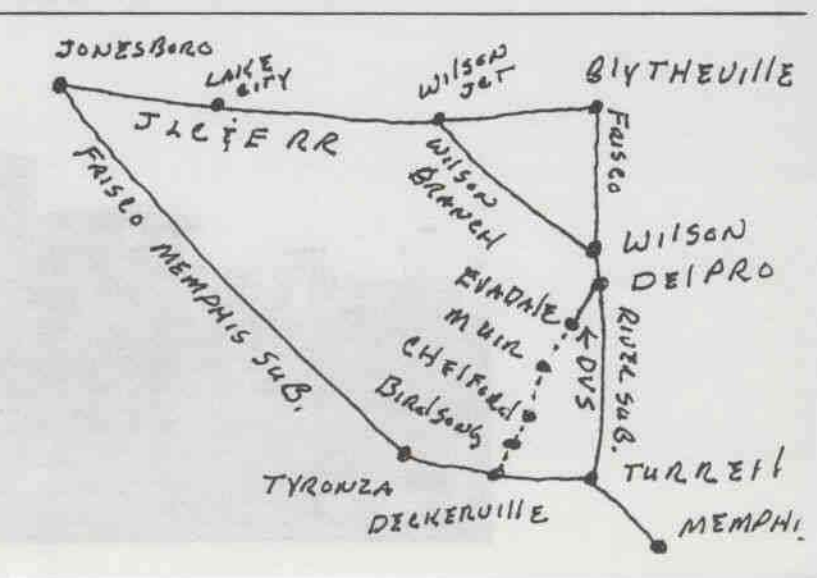 JONESBORO
LAKE
CITY
WILSON
JCT
BLYTHEVILLE
JLC & E RR
FRISCO
WILSON
BRANCH
FRISCO MEMPHIS SUB.
WILSON
DELPRO
EVADALE
MUIR
CHELFORD
BIRDSONG
DVS
RIVER SUB.
TYRONZA
DECKERVILLE
TURRELL
MEMPHI.